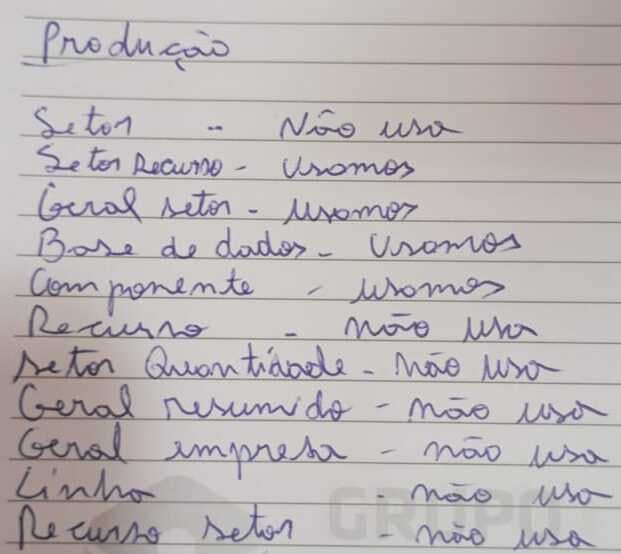 Produção
Setor - Não usa
Setor Recurso - Usamos
Geral setor - usamos
Base de dados - Usamos
Componente - usamos
Recurso - não usa
setor Quantidade - não usa
Geral resumido - não usa
Geral empresa - não usa
Linha - não usa
Recurso setor - não usa
GRUPO